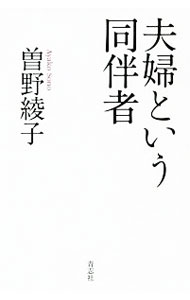 夫婦という
同伴者
曽野綾子
Ayako Sono
青志社